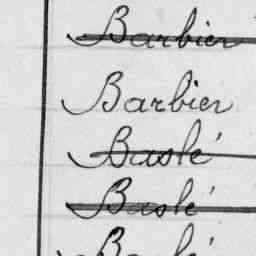 Barbier
Barbier
Baslé
Baslé